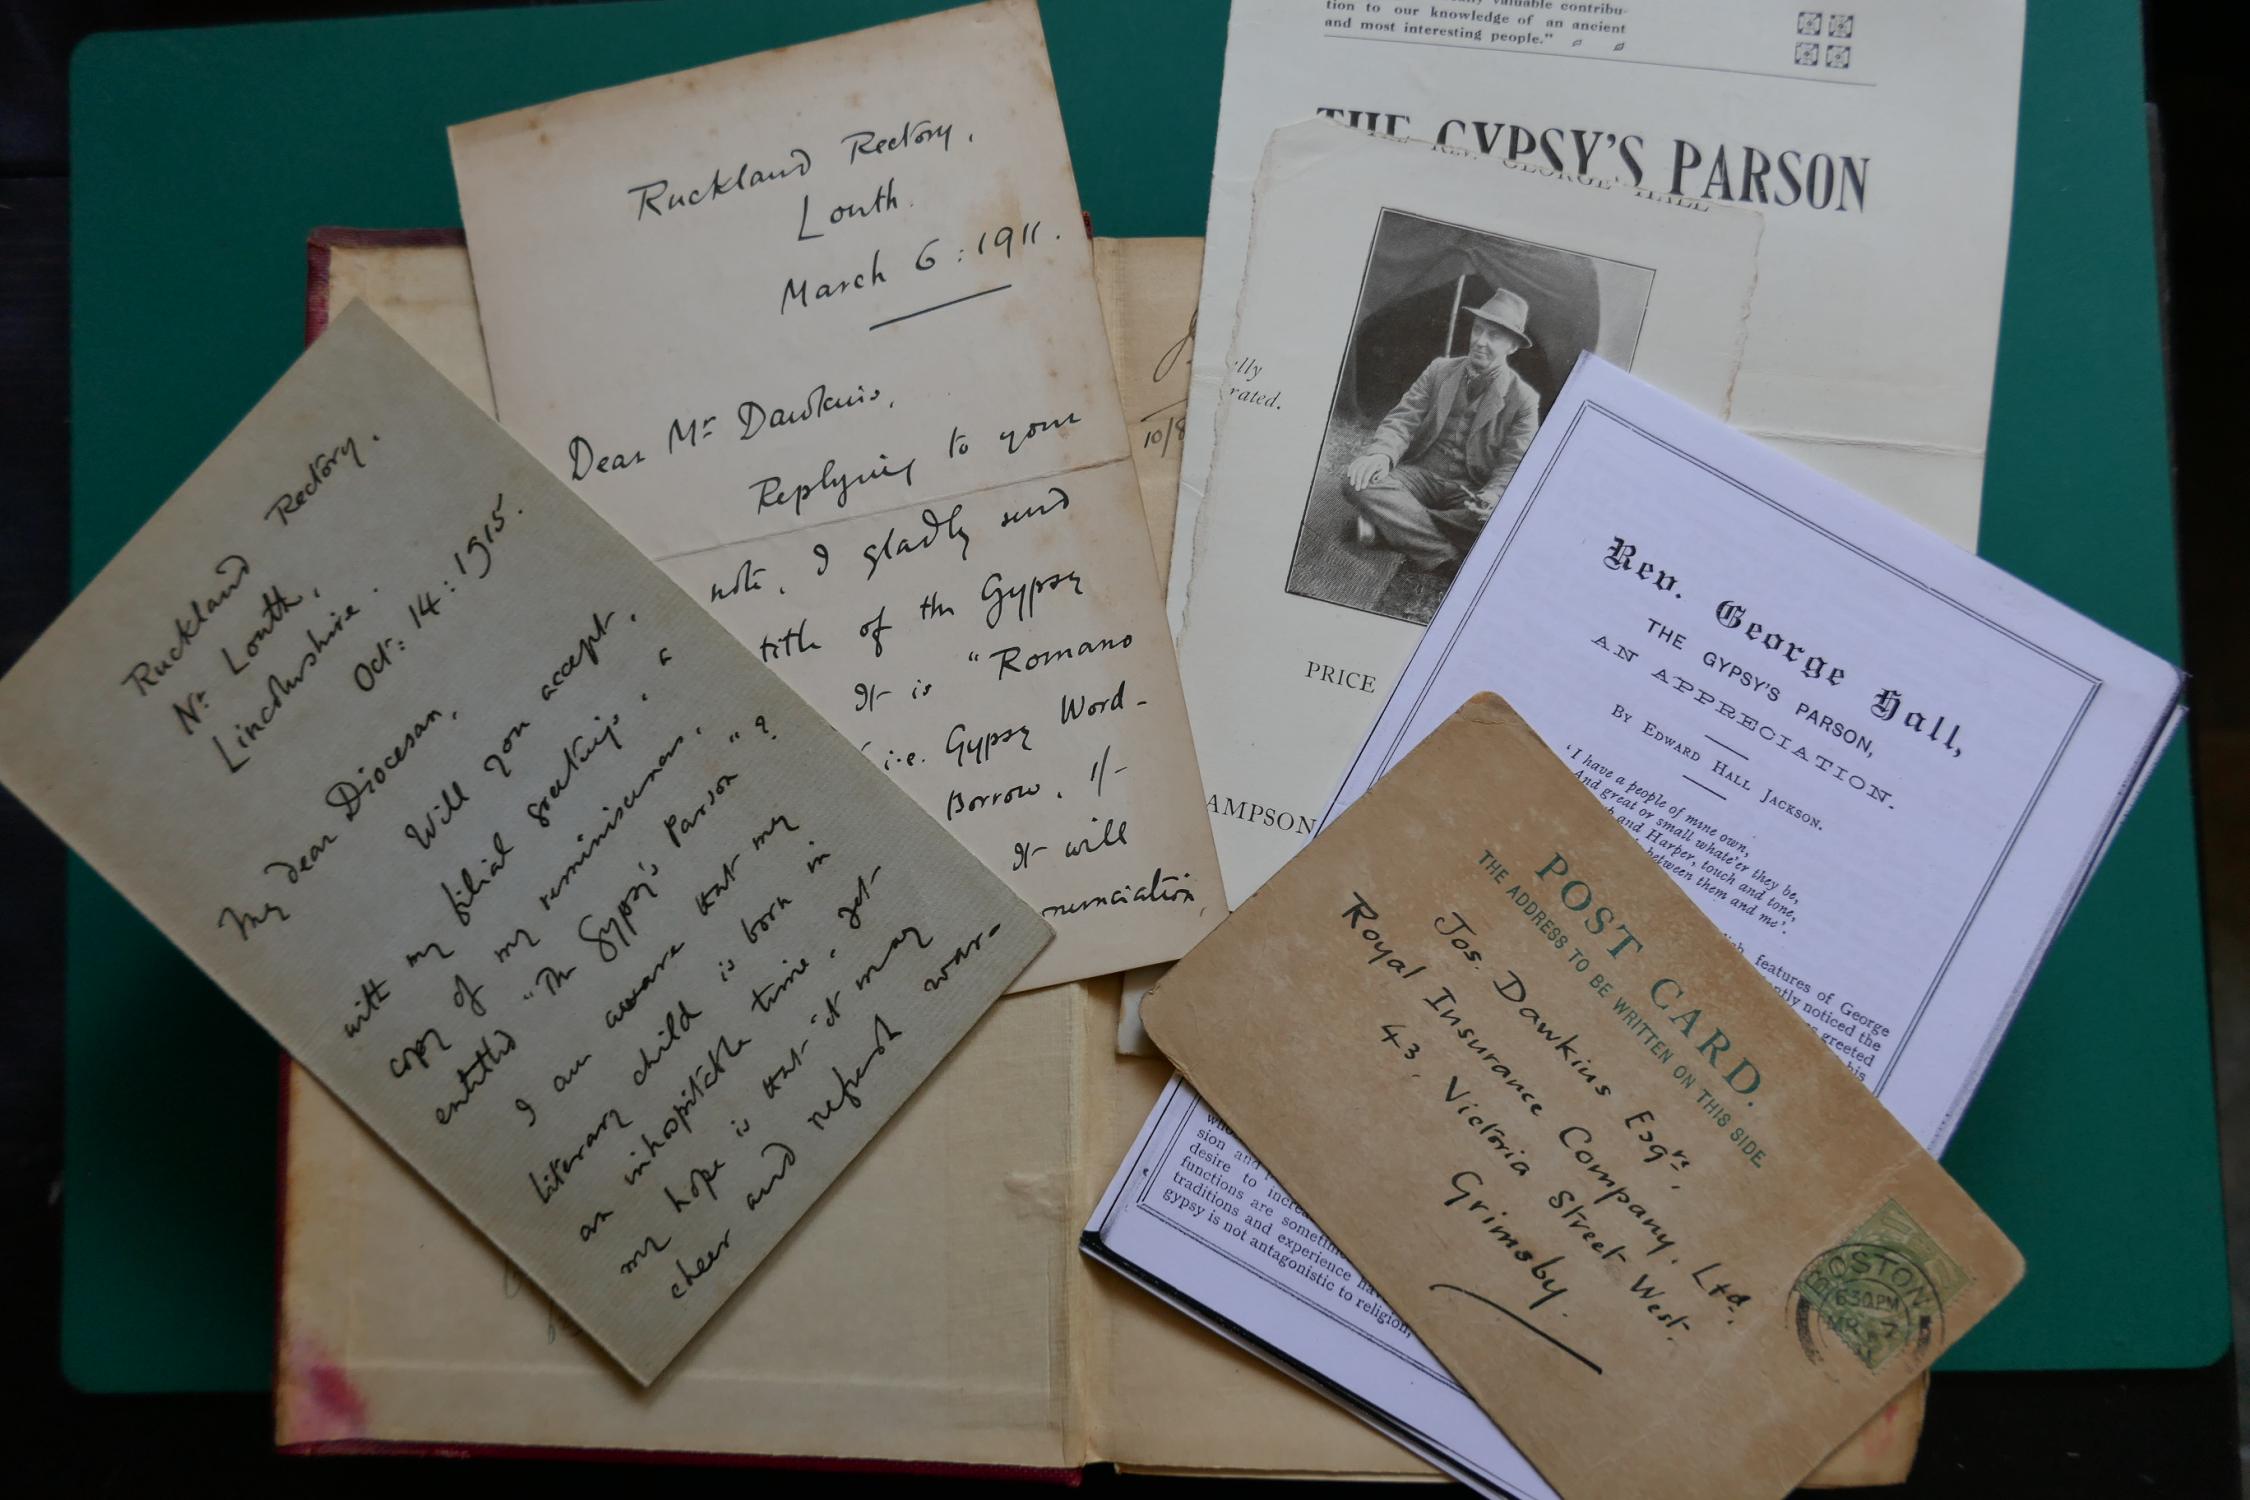 Ruckland Rectory,
Nr Louth,
Lincolnshire.
Oct: 14: 1915.
My dear Diocesan,
Will you accept,
with my filial greetings, a
copy of my reminiscences,
entitled "The Gypsy's Parson"?
I am aware that my
literary child is born in
an inhospitable time, yet
my hope is that it may
cheer and refresh war-
Ruckland Rectory,
Louth.
March 6: 1911.
Dear Mr Dawkins,
Replying to your
note, I gladly send
title of the Gypsy
It is "Romano
i.e. Gypsy Word-
Borrow, 1/-
It will
10/8
tion to our knowledge of an ancient
and most interesting people."
THE GYPSY'S PARSON
REV. GEORGE HALL
PRICE
AMPSON
Rev. George Hall,
THE GYPSY'S PARSON,
AN APPRECIATION.
By Edward Hall Jackson.
'I have a people of mine own,
And great or small whate'er they be,
and Harper, touch and tone,
between them and me'.
features of George
noticed the
greeted
his
sion and
desire to
functions are
traditions and experience
gypsy is not antagonistic to religion,
POST CARD.
THE ADDRESS TO BE WRITTEN ON THIS SIDE
Jos. Dawkins Esqre,
Royal Insurance Company, Ltd.
43, Victoria Street West.
Grimsby.
BOSTON
6 30 PM